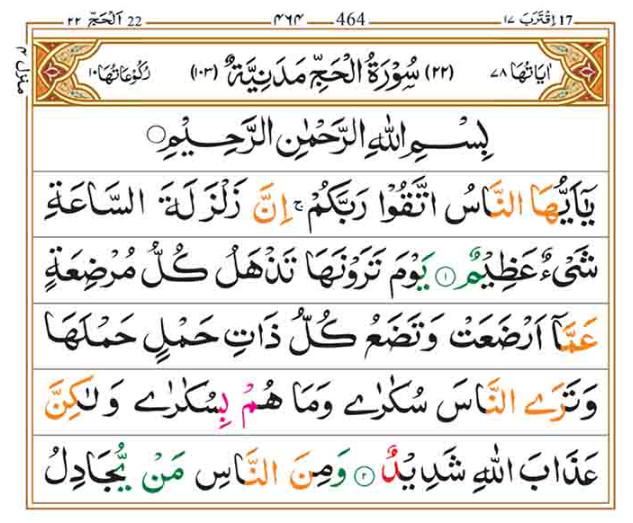 17 اِقْتَرَبَ ١٧ — 464 — ٤٦٤ — 22 اَلْحَجّ ٢٢
منزل ٤
اٰيَاتُهَا ٧٨ (٢٢) سُوْرَةُ الْحَجِّ مَدَنِيَّةٌ (١٠٣) رُكُوْعَاتُهَا ١٠
بِسْمِ اللّٰهِ الرَّحْمٰنِ الرَّحِيْمِ
يٰۤاَيُّهَا النَّاسُ اتَّقُوْا رَبَّكُمْ ۚ اِنَّ زَلْزَلَةَ السَّاعَةِ
شَیْءٌ عَظِيْمٌ ١ يَوْمَ تَرَوْنَهَا تَذْهَلُ كُلُّ مُرْضِعَةٍ
عَمَّاۤ اَرْضَعَتْ وَتَضَعُ كُلُّ ذَاتِ حَمْلٍ حَمْلَهَا
وَتَرَے النَّاسَ سُكٰرٰے وَمَا هُمْ بِسُكٰرٰے وَلٰكِنَّ
عَذَابَ اللّٰهِ شَدِيْدٌ ٢ وَمِنَ النَّاسِ مَنْ يُّجَادِلُ